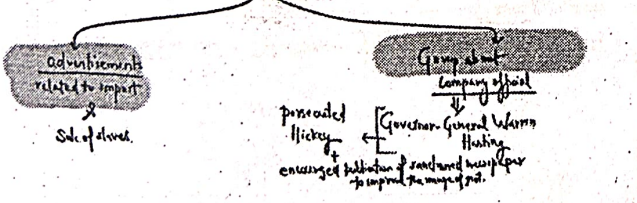 advertisements
related to import
&
Sale of slaves.
Gossip about
Company official
Governor-General Warren
Hasting
persecuted
Hickey
+
encouraged publication of sanctioned newspaper
to improve the image of govt.